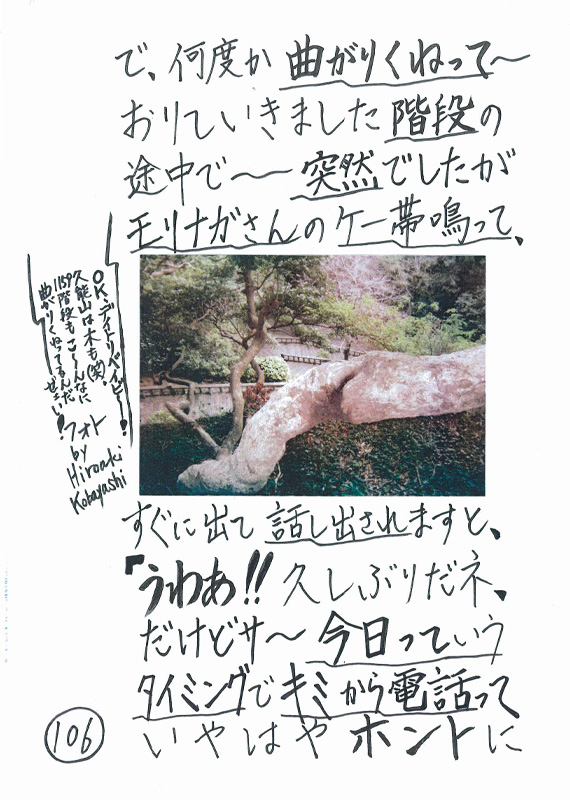 で、何度か曲がりくねって〜
おりていきました階段の
途中で〜突然でしたが
モリナガさんのケー帯鳴って、
OK、デイトリッパベイビー!
久能山は木も(笑)、
1159階段もこ〜んなに
曲がりくねってるんだ
ぜェい!
フォト
by
Hiroaki
Kobayashi
すぐに出て話し出されますと、
『うわあ!!久しぶりだネ、
だけどサ〜今日っていう
タイミングでキミから電話って
いやはやホントに
106